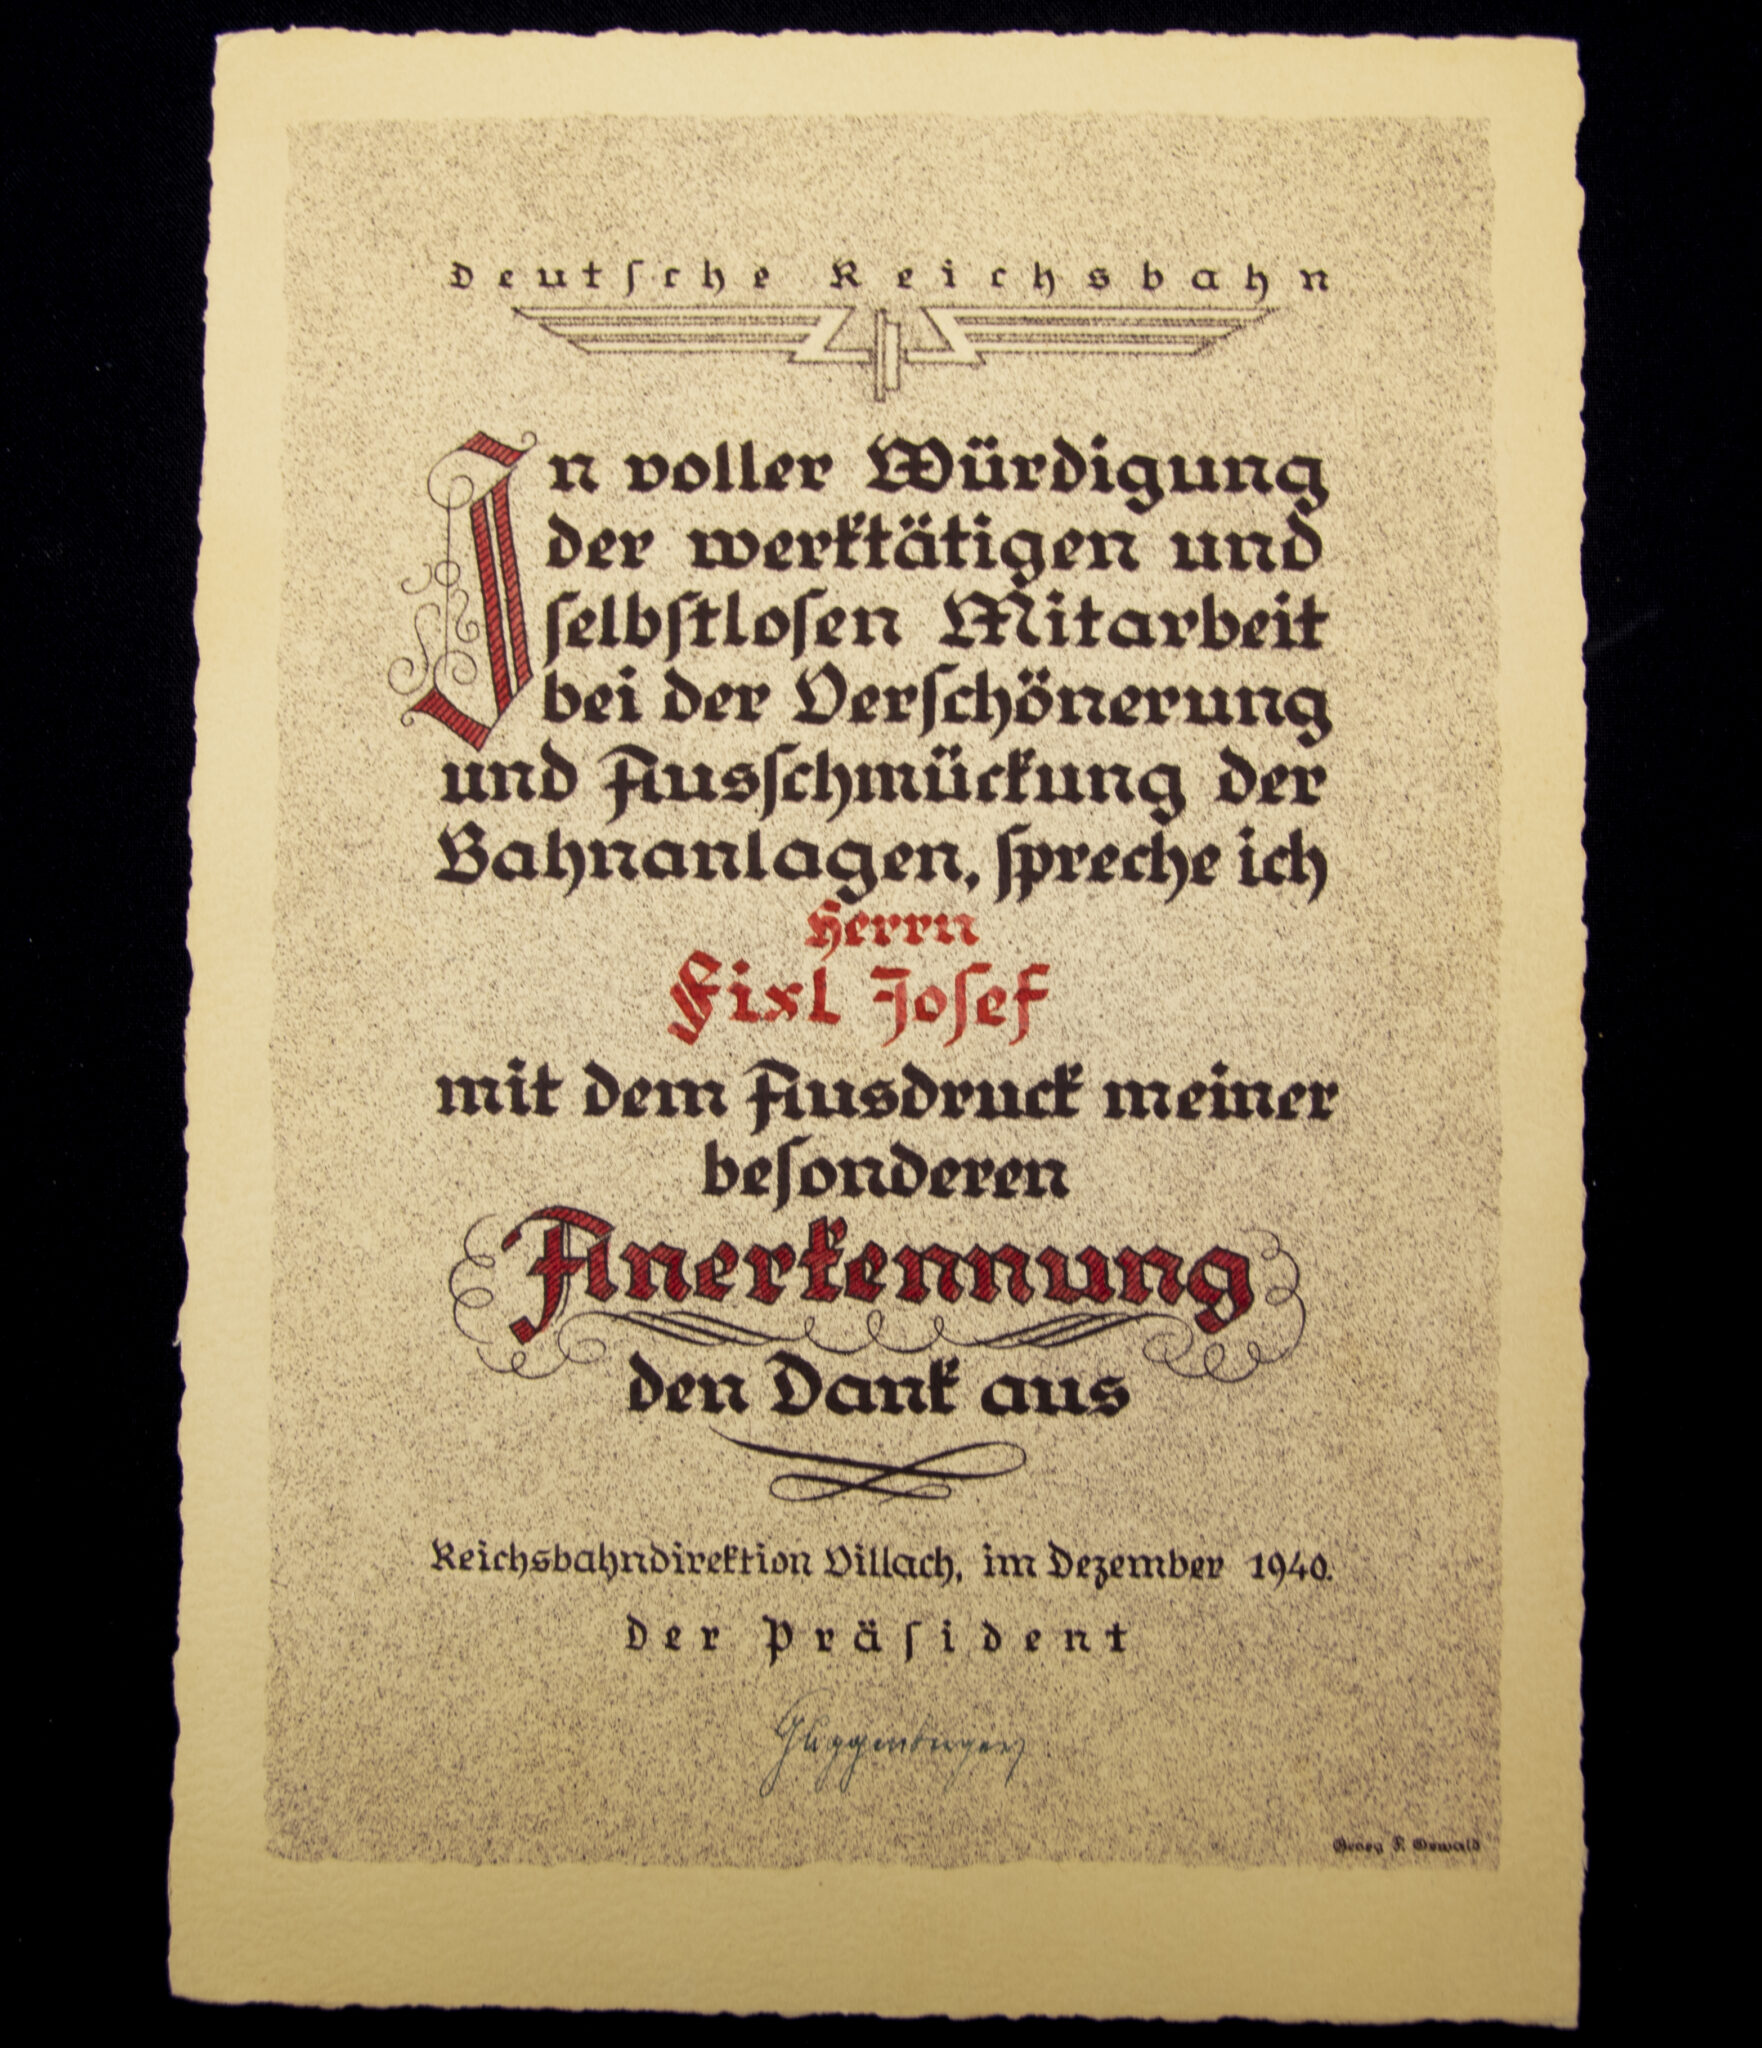 Deutſche Reichsbahn
In voller Würdigung
der werktätigen und
ſelbſtloſen Mitarbeit
bei der Verſchönerung
und Ausſchmückung der
Bahnanlagen, ſpreche ich
Herrn
Fixl Joſef
mit dem Ausdruck meiner
beſonderen
Anerkennung
den Dank aus
Reichsbahndirektion Villach, im Dezember 1940.
Der Präſident
Guggenberger
Georg F. Oswald